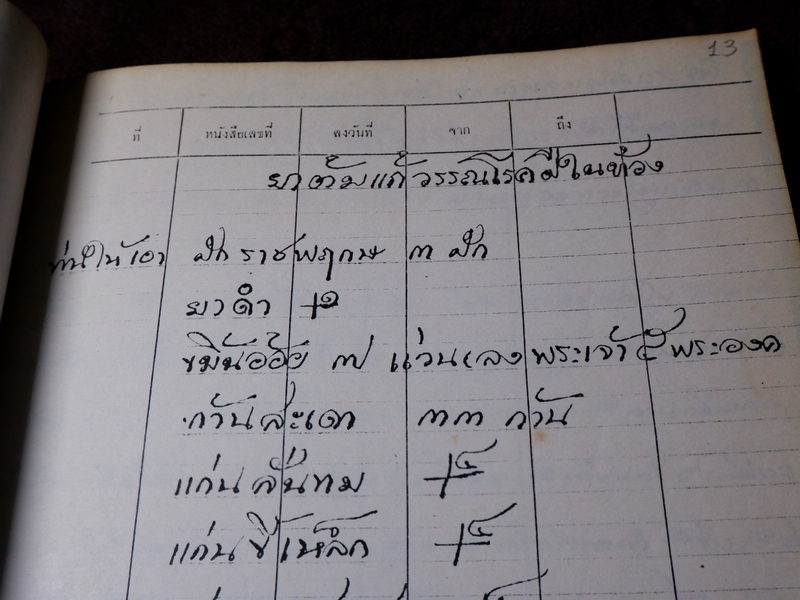 13
ที่ หนังสือเลขที่ ลงวันที่ จาก ถึง
ยาต้มแก้วรรณโรคฝีในท้อง
ท่านให้เอา ฝักราชพฤกษ ๓ ฝัก
ยาดำ +๑
ขมิ้นอ้อย ๗ แว่นลง พระเจ้า ๕ พระองค
ก้านสะเดา ๓๓ ก้าน
แก่นลั่นทม +๔
แก่นขี้เหล็ก +๔